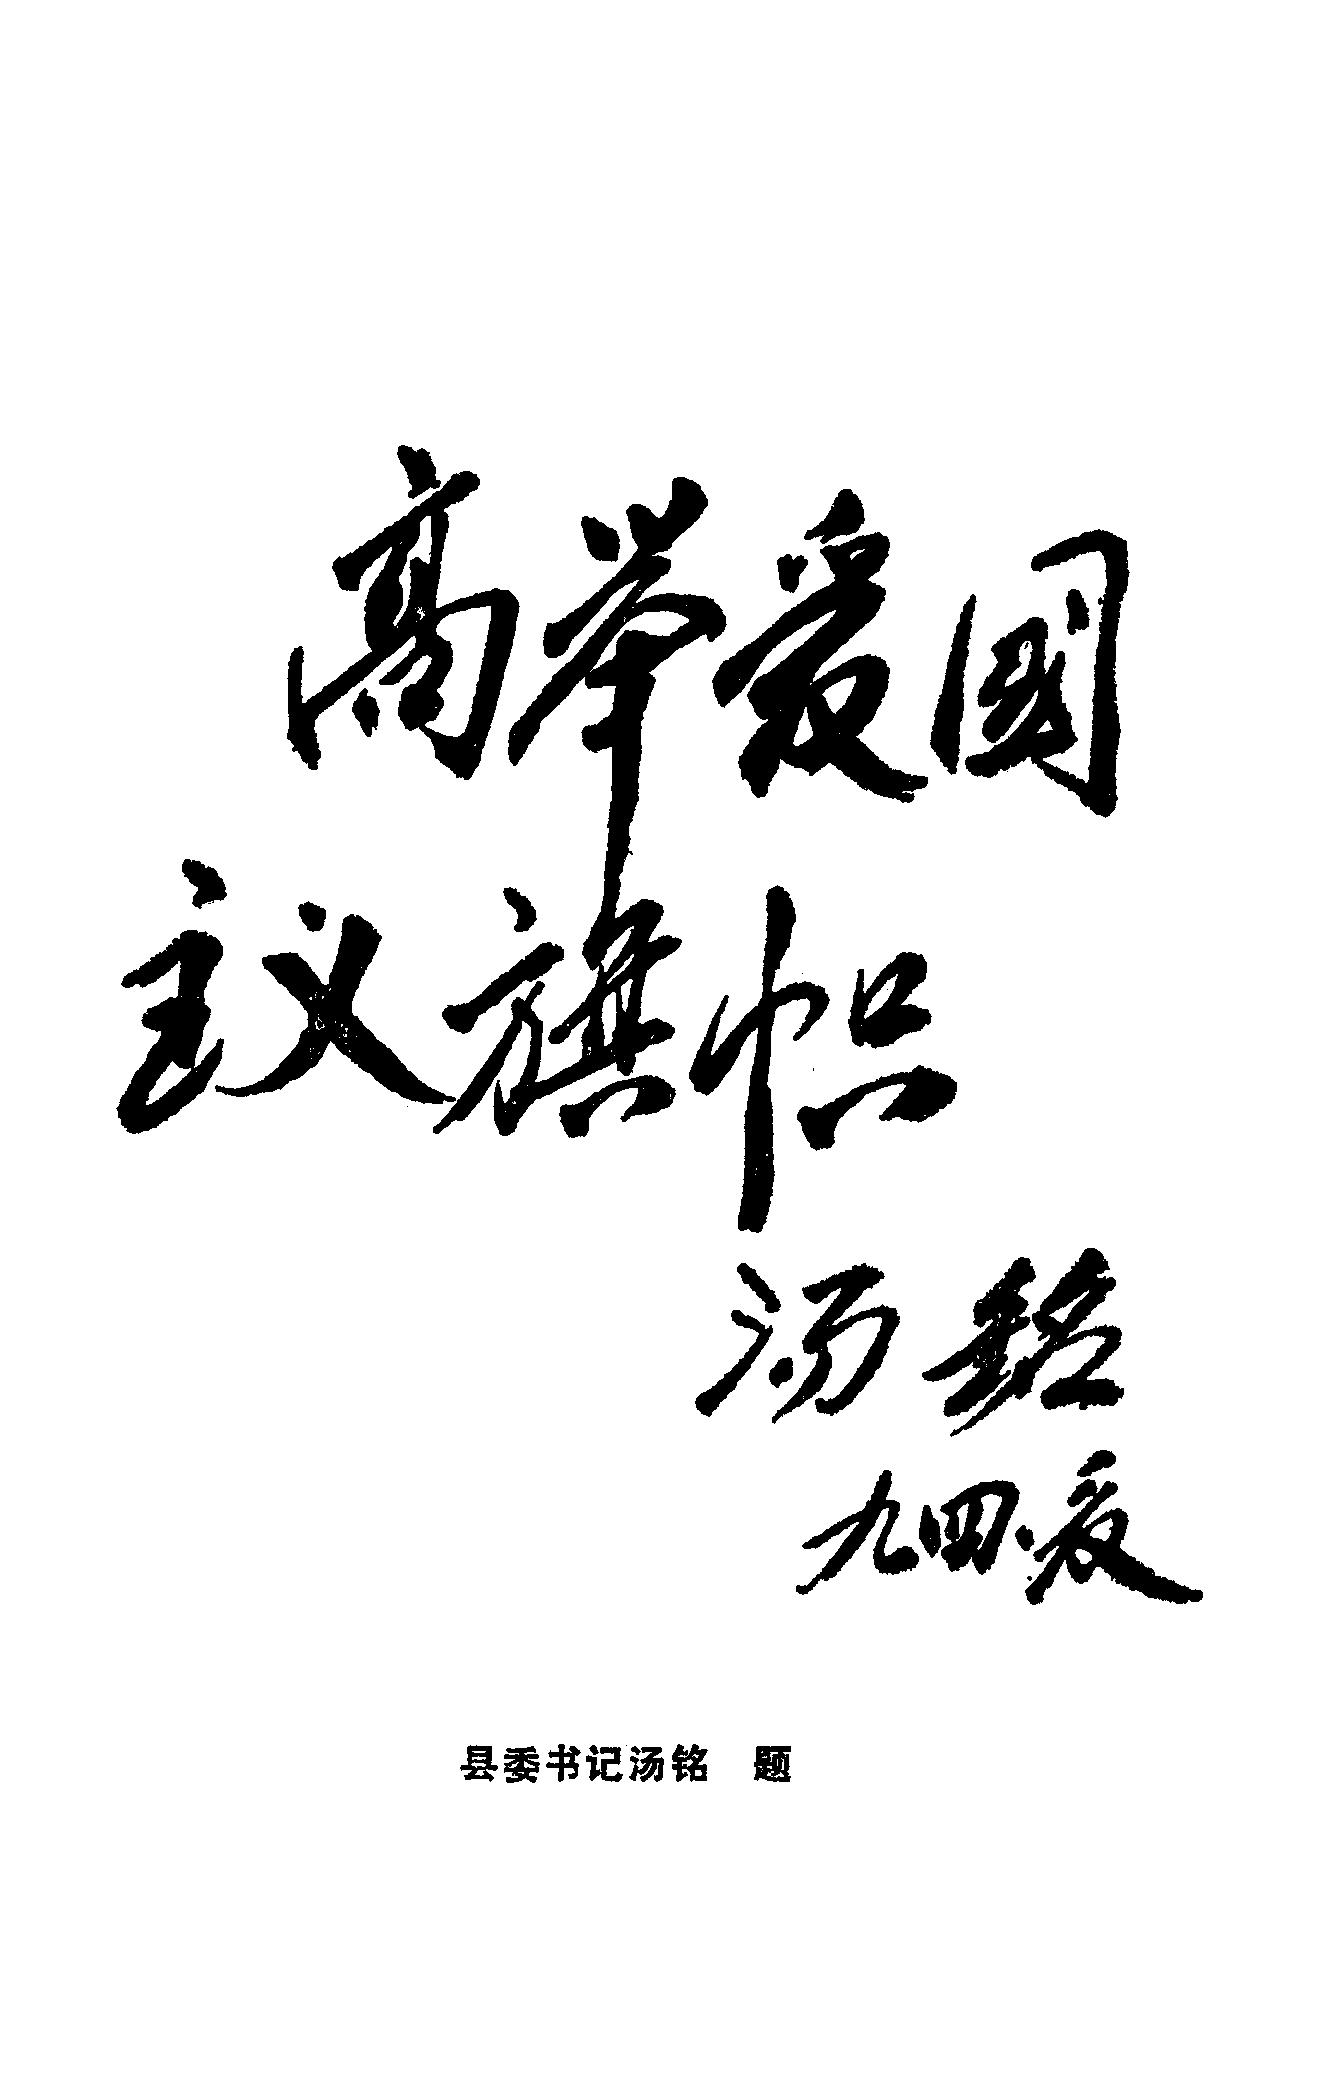 高举爱國
主义旗帜
汤銘
九四.夏
县委书记汤铭 题